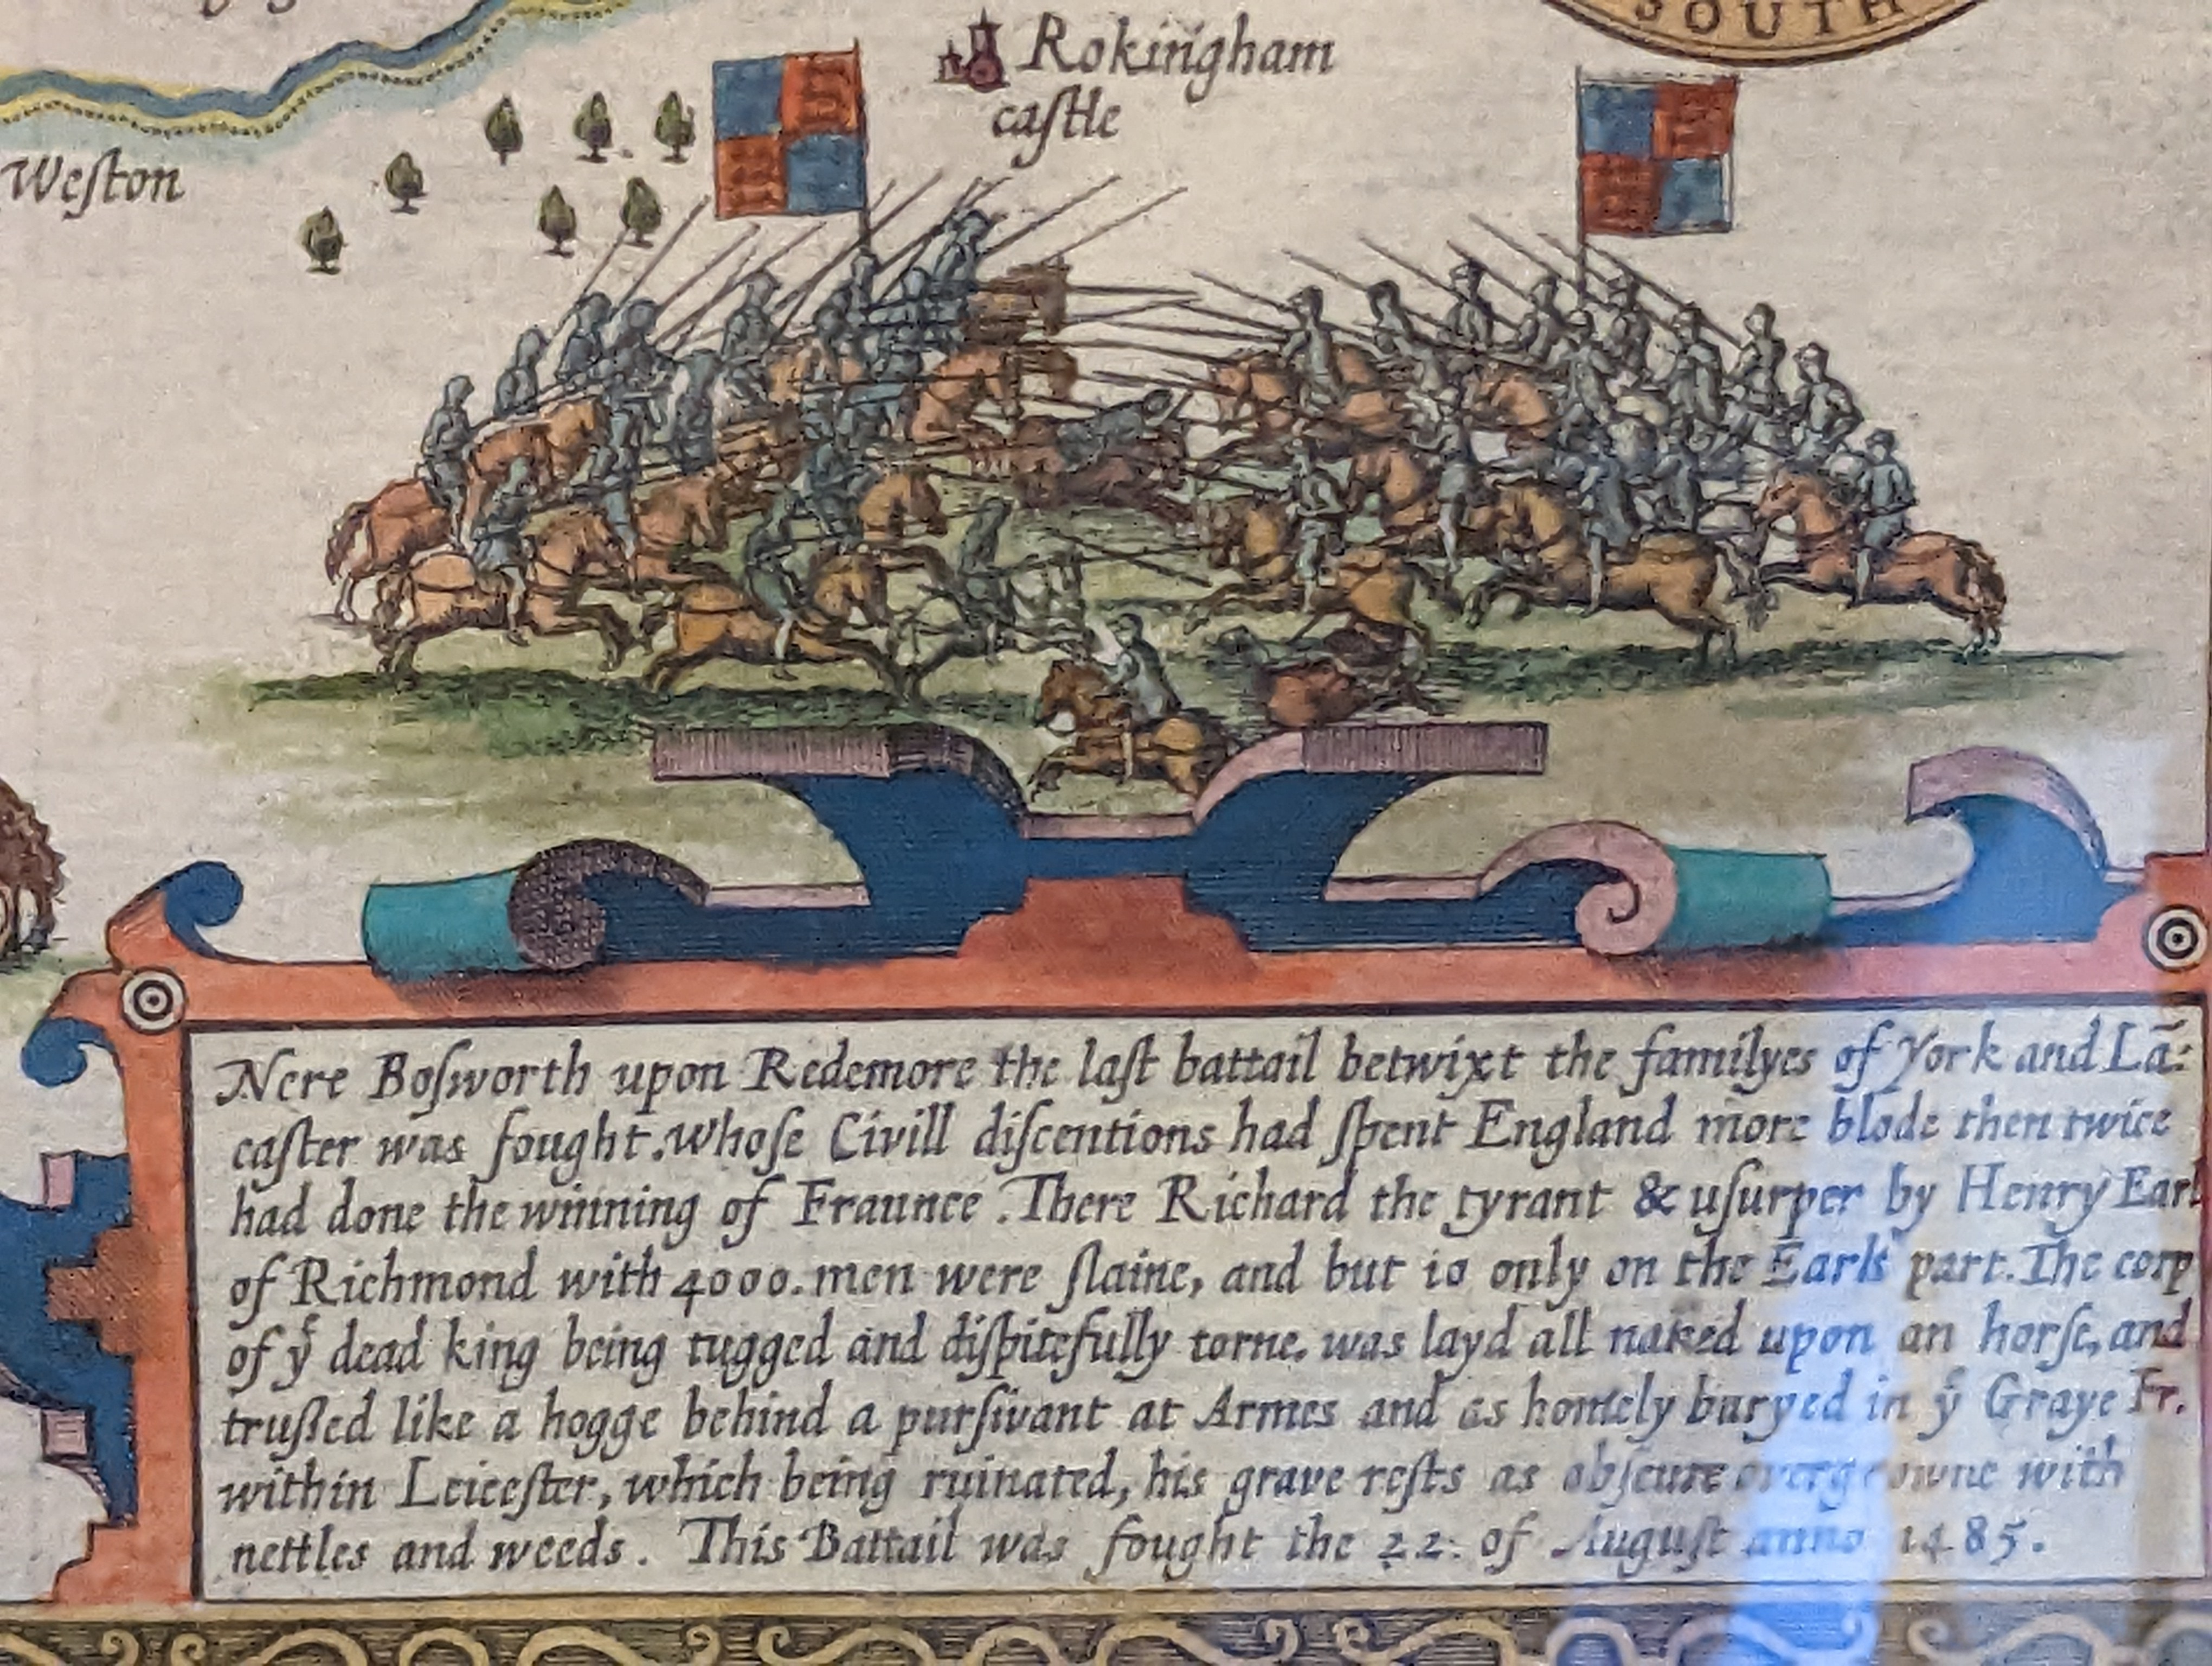 SOUTH
Rokingham
caſtle
Weſton
Nere Boſworth upon Redemore the laſt battail betwixt the familyes of York and Lā:
caſter was fought. whoſe Civill diſcentions had ſpent England more blode then twice
had done the winning of Fraunce. There Richard the tyrant & uſurper by Henry Earl
of Richmond with 4000. men were ſlaine, and but 10 only on the Earls part. The corp
of yͤ dead king being tugged and diſpitefully torne. was layd all naked upon an horſe, and
truſſed like a hogge behind a purſivant at Armes and as homely buryed in yͤ Graye Fr.
within Leiceſter, which being ruinated, his grave reſts as obſcure overgrowne with
nettles and weeds. This Battail was fought the 22. of Auguſt anno 1485.